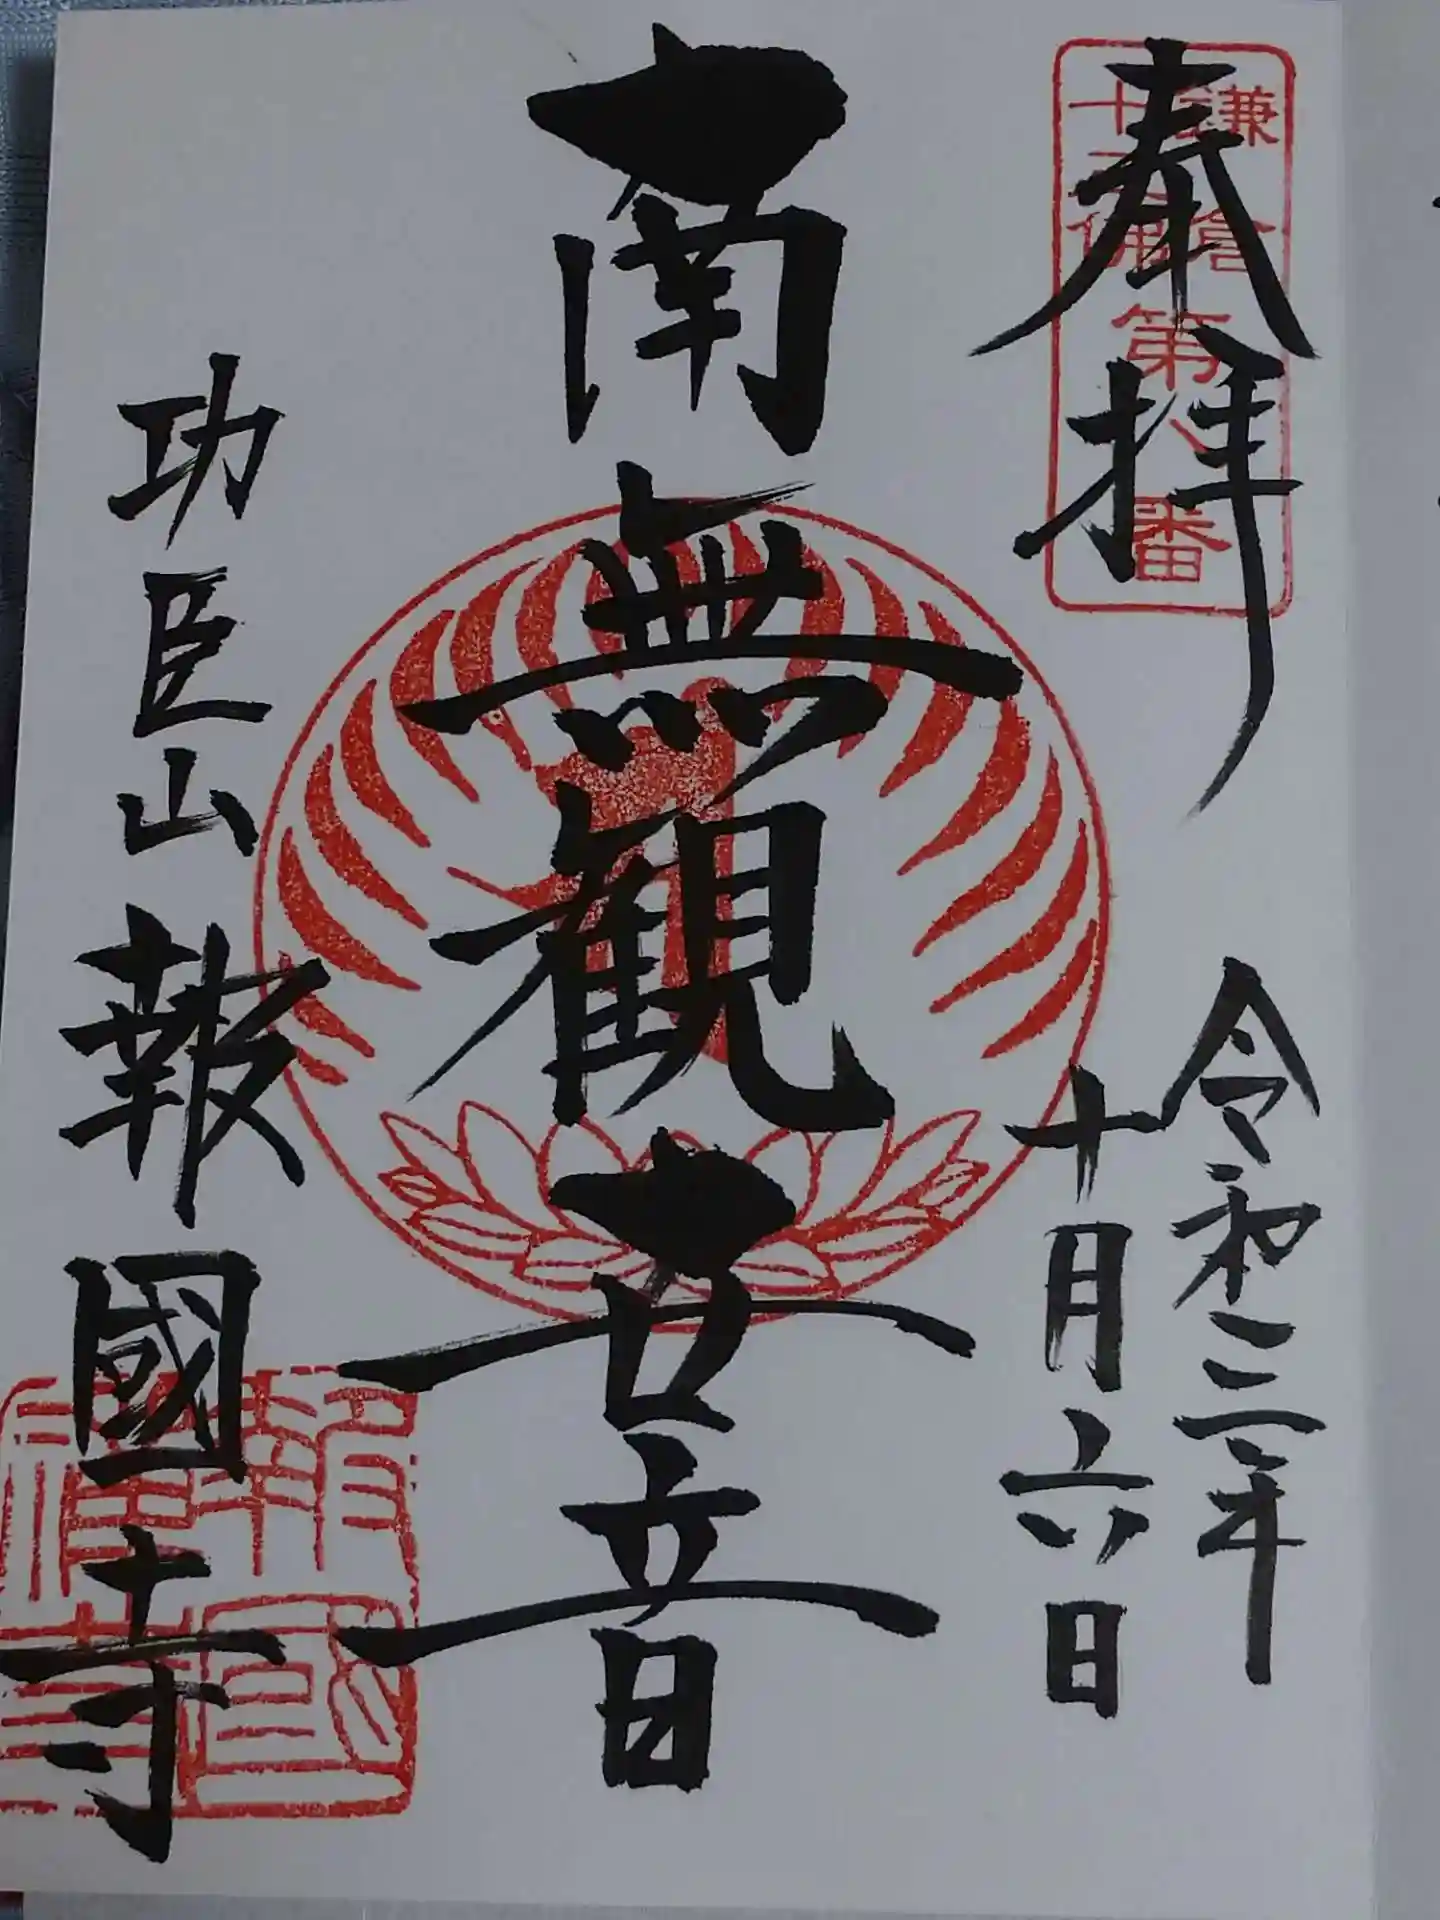 鎌倉
十三佛
第八番
奉拝
令和三年
十月六日
南無観世音
功臣山 報國寺